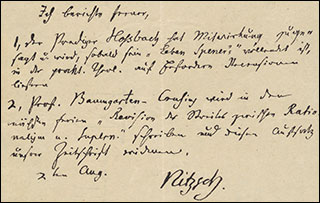 Ich berichte ferner,
1, der Prediger Hoßbach hat Mitwirkung zuge-
sagt u wird, sobald sein „Leben Speners“ vollendet ist,
in der prakt. Theol. auf Erfordern Recensionen
liefern
2, Prof. Baumgarten-Crusius wird in dem
nächsten freien „Revision des Streites zwischen Ratio
nalism u. Suprn.“ schreiben und diesen Aufsatz
unsrer Zeitschrift widmen.
2ten Aug.
Nitzsch.